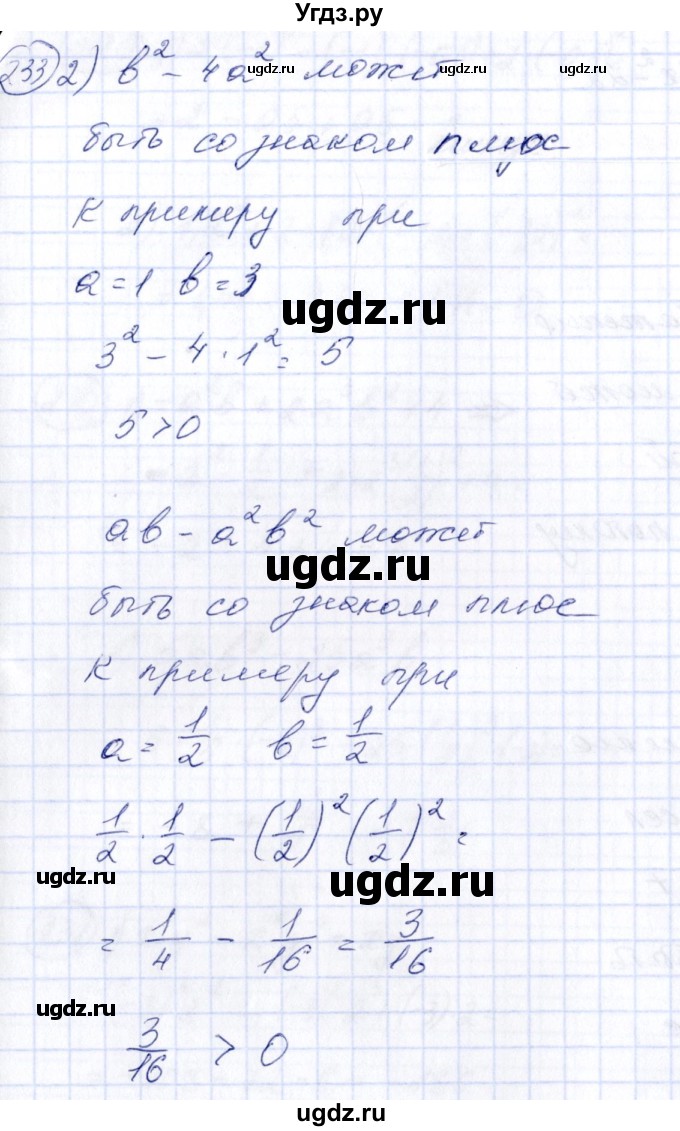 Угдз.ру
233 2) b² - 4a² может
ugdz.ru ugdz.ru ugdz.ru
быть со знаком плюс
К примеру при
a = 1 b = 3
ugdz.ru
3² - 4 · 1² = 5
5 > 0
ab - a²b² может
ugdz.ru
быть со знаком плюс
К примеру при
a = 1/2 b = 1/2
1/2 · 1/2 - (1/2)² (1/2)² =
ugdz.ru
ugdz.ru
= 1/4 - 1/16 = 3/16
ugdz.ru
3/16 > 0
ugdz.ru